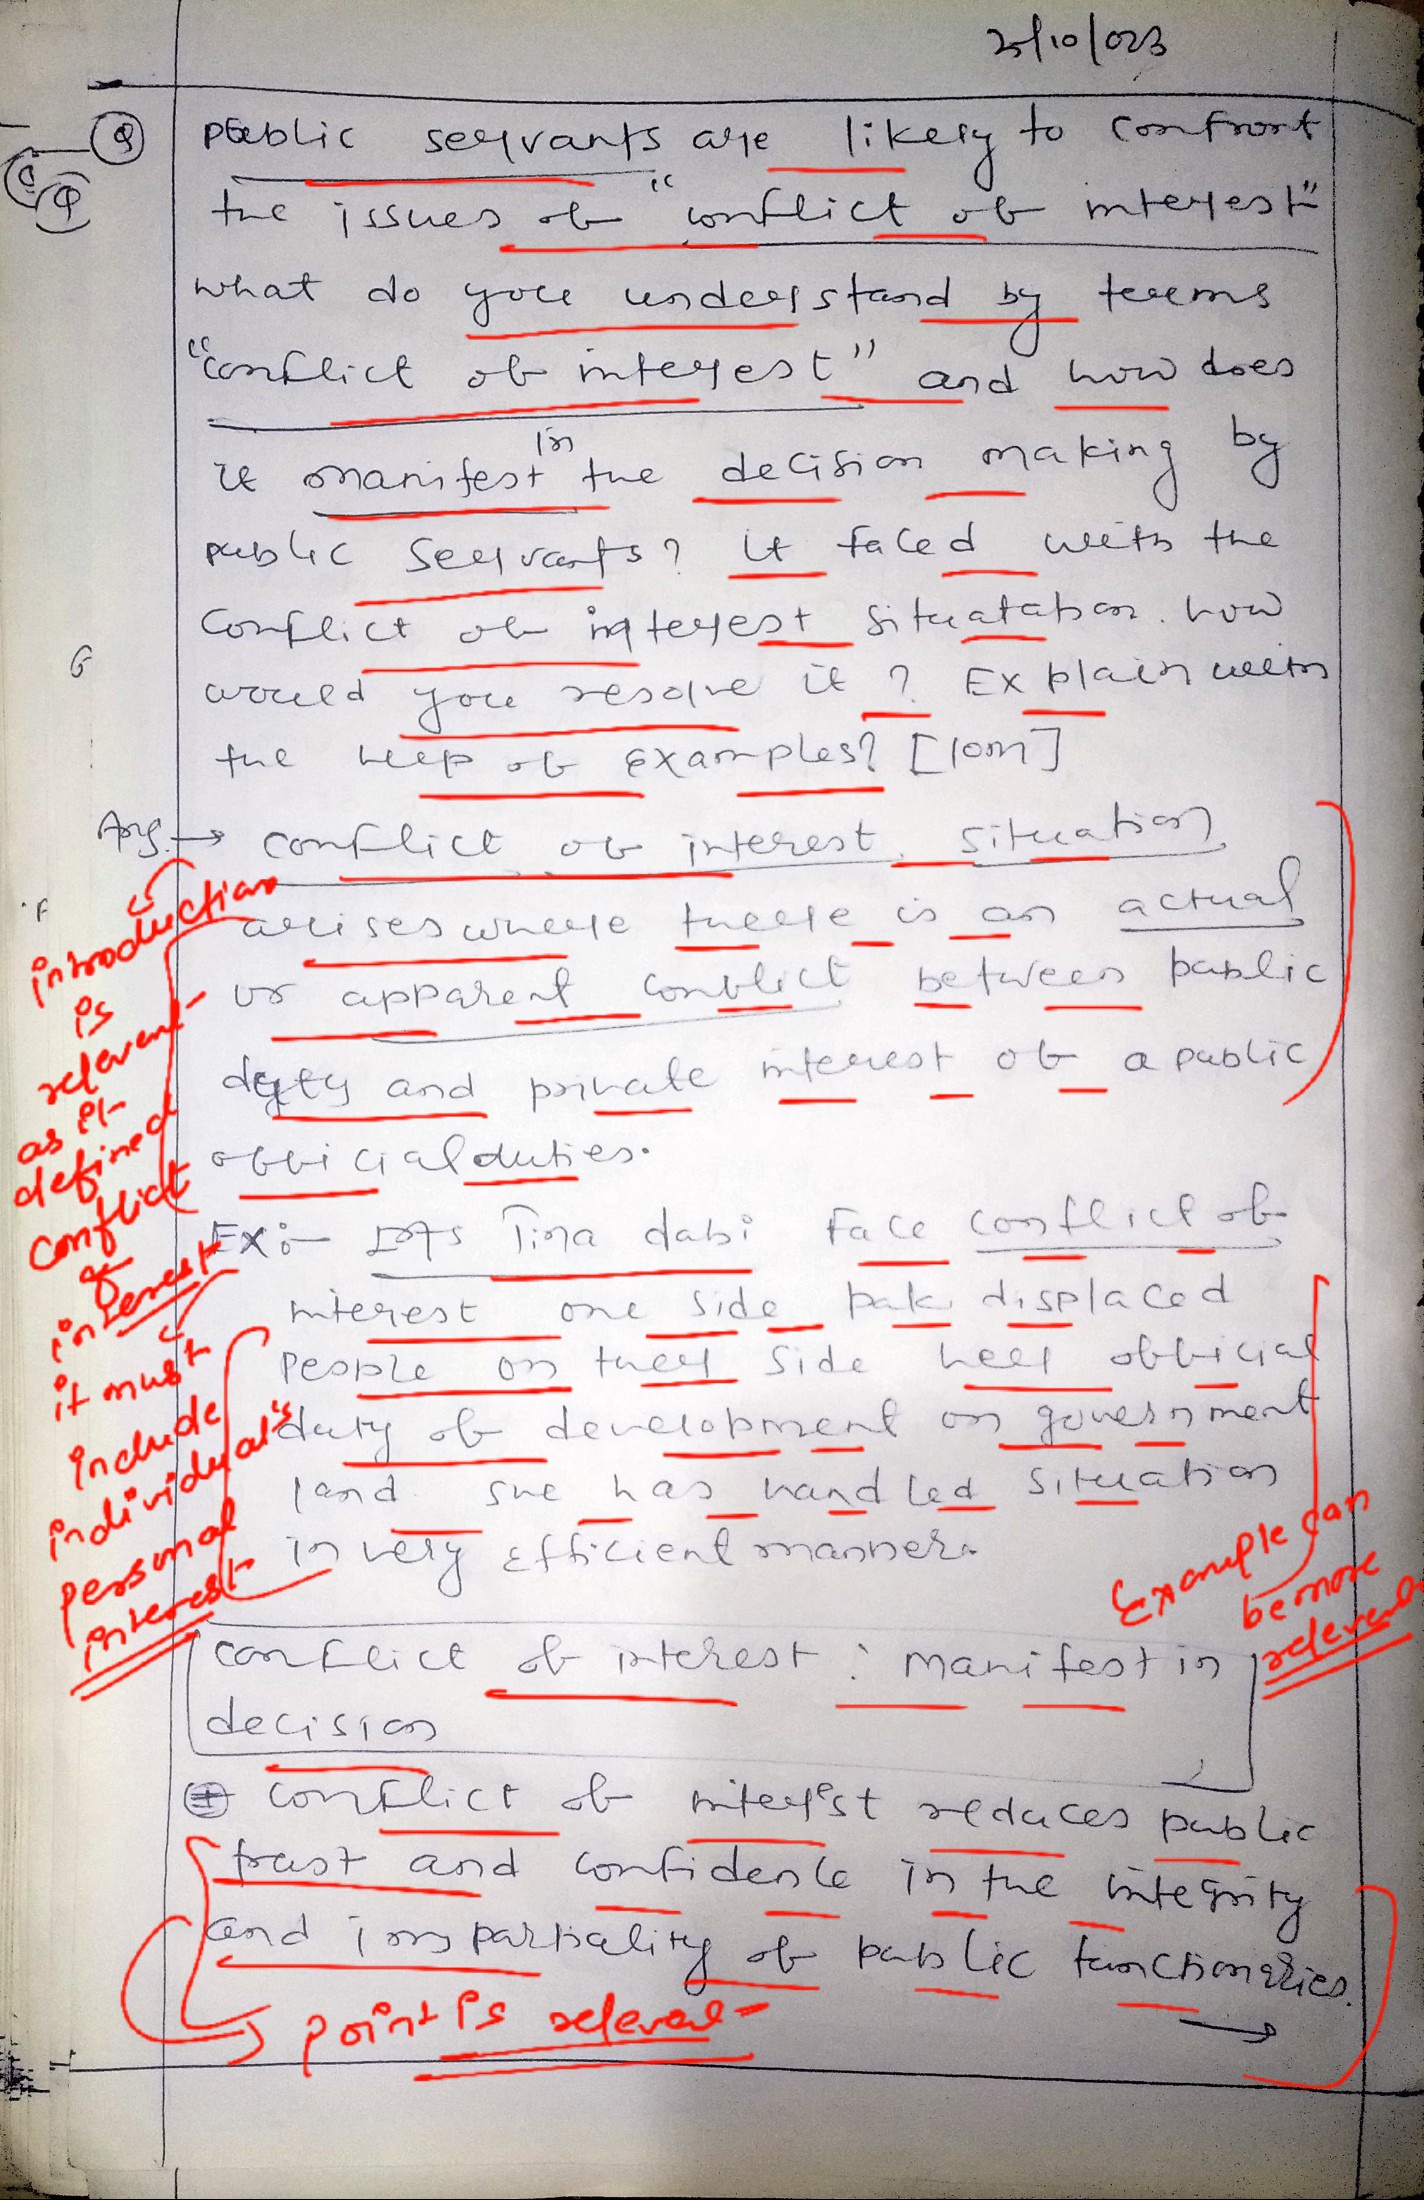 25/10/023
Q public servants are likely to confront
the issues of "conflict of interest"
what do you understand by terms
"conflict of interest" and how does
it manifest in the decision making by
public servants? If faced with the
conflict of interest situatation. how
would you resolve it? Explain with
the help of examples? [10m]
Ans → conflict of interest situation
arises where there is an actual
or apparent conflict between public
duty and private interest of a public
official duties.
Ex:- IAS Tina dabi Face conflict of
interest one side pak displaced
people on ther side her official
duty of development on government
land she has handled situation
in very efficient manner.
conflict of interest : Manifest in
decision
conflict of interest reduces public
trust and confidence in the integrity
and impartiality of public functionaries.
introduction
is
relevant
as it
defined
conflict
of
interest
it must
include
individual's
personal
interest
Example can
be more
relevant
point is relevant